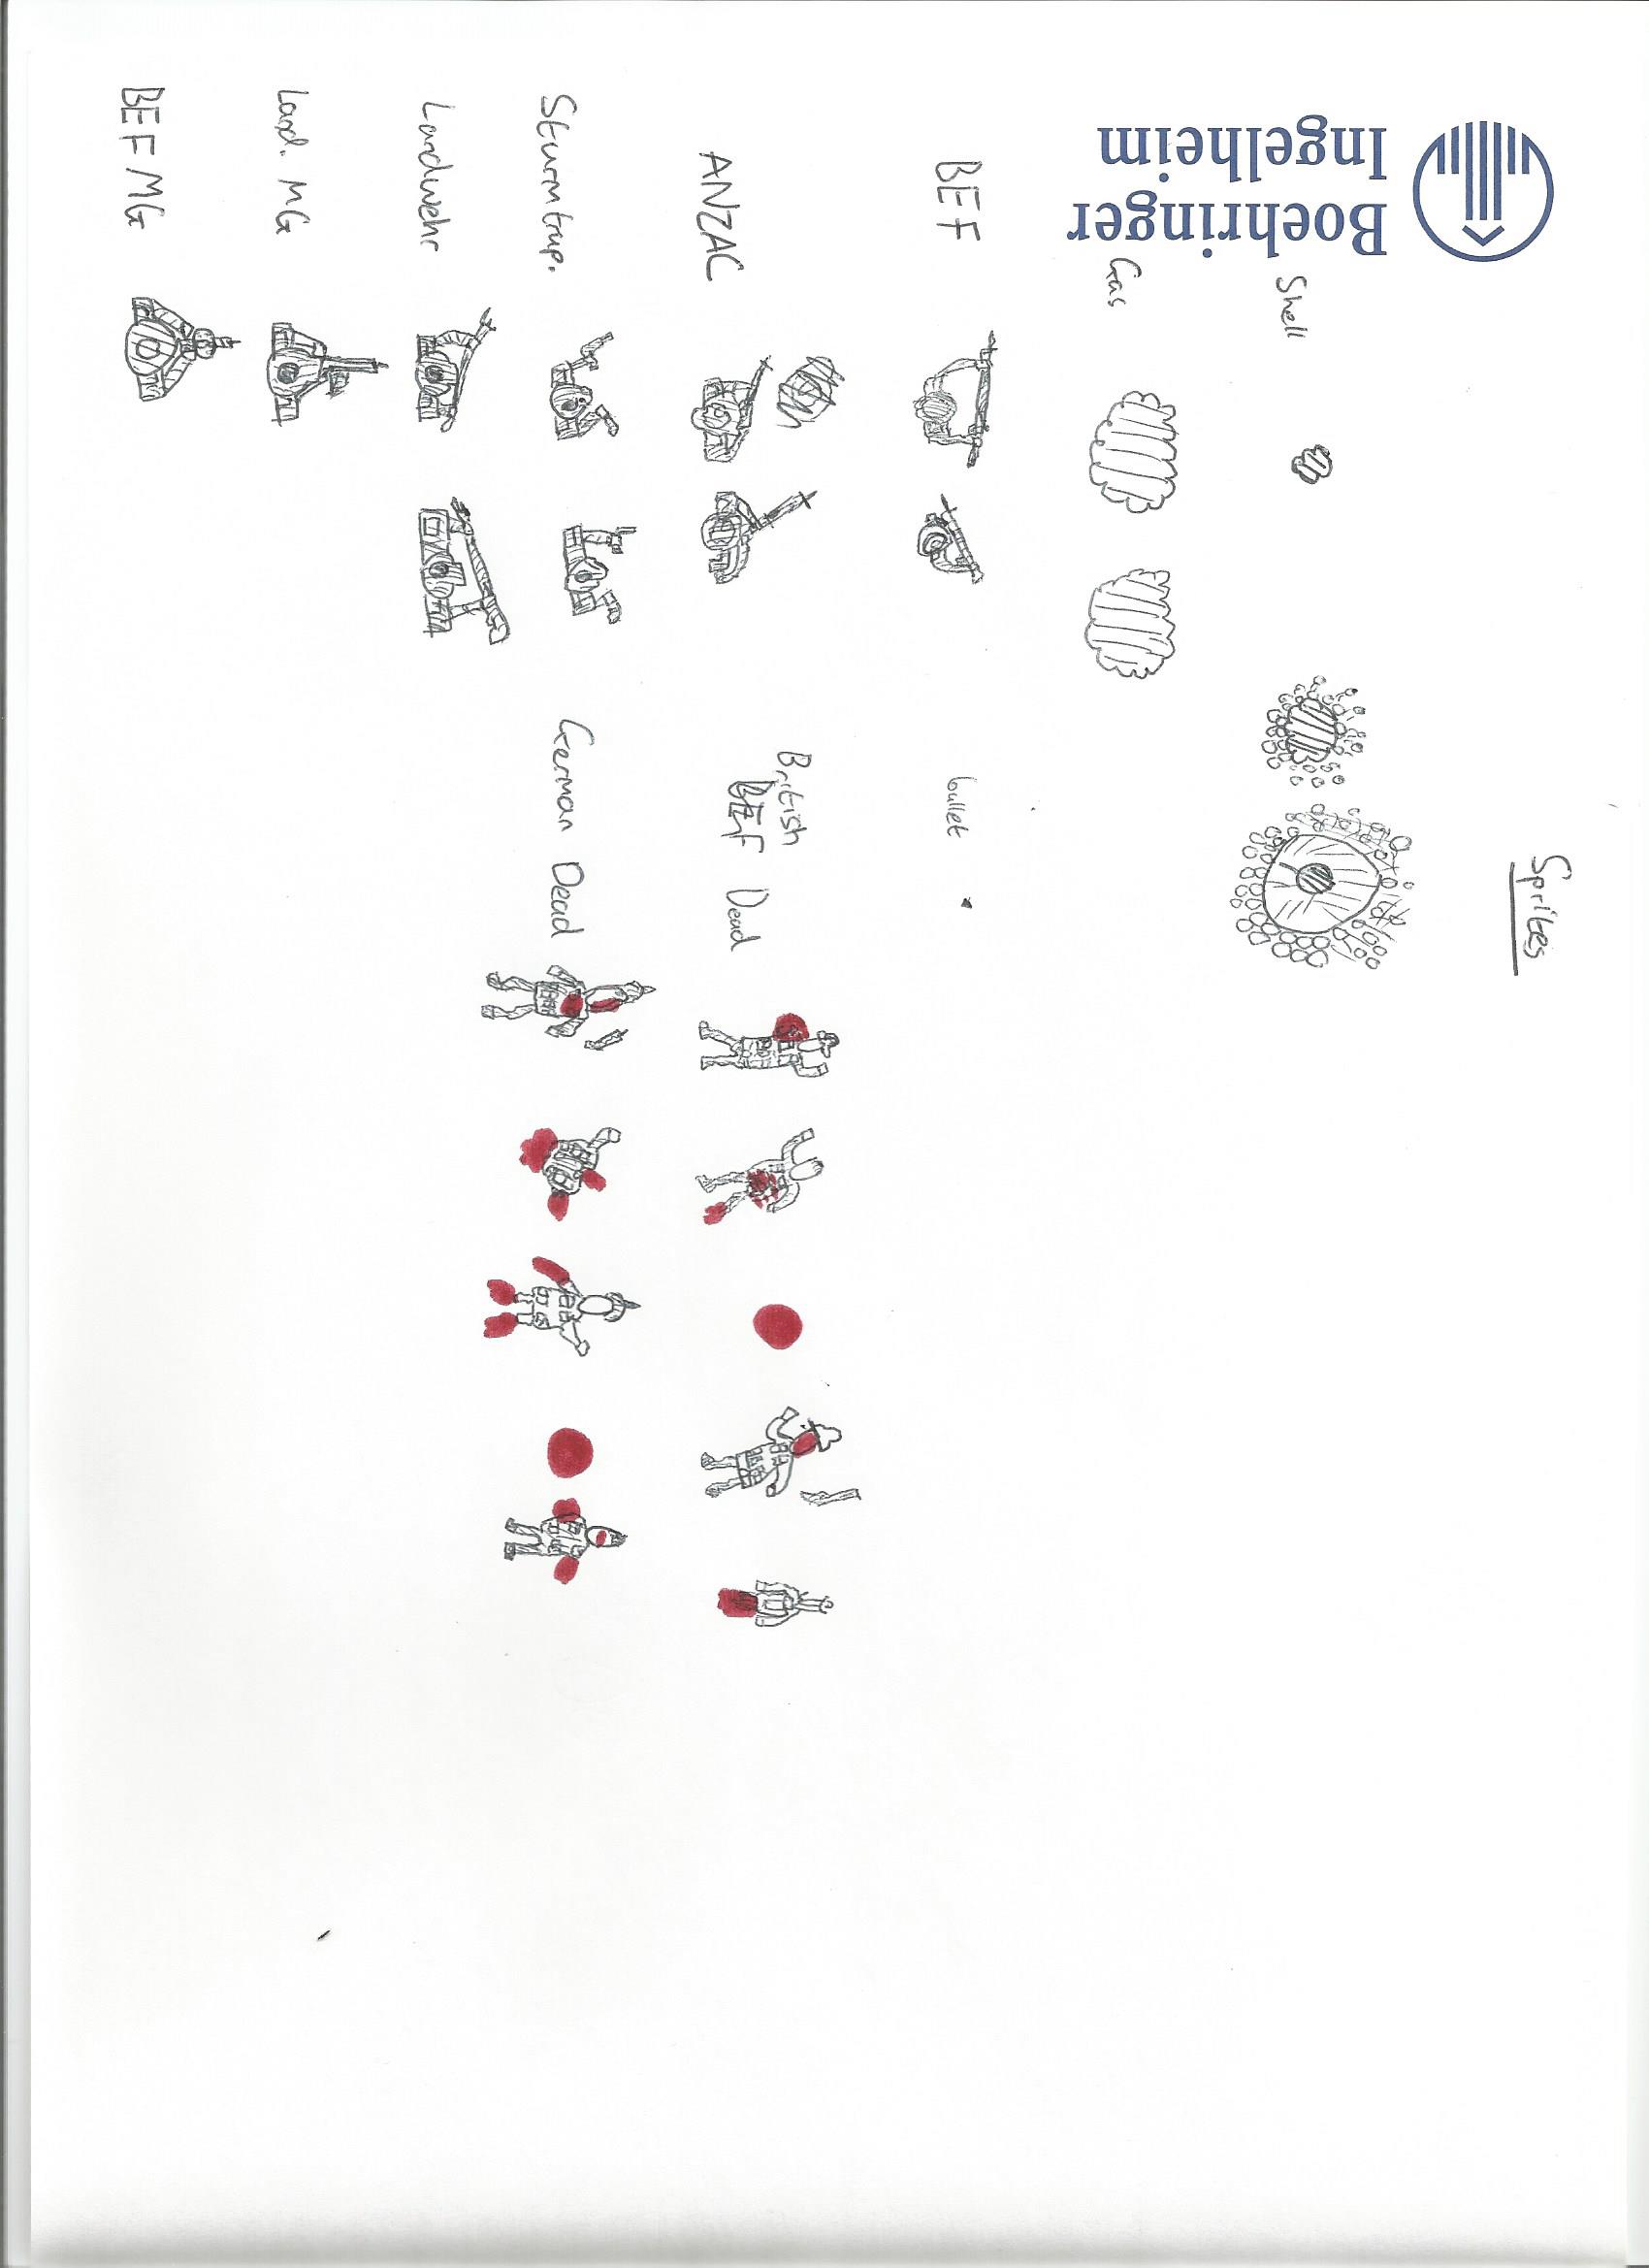 Sprites
Boehringer
Ingelheim
Shell
Gas
BEF
bullet
ANZAC
British
BEF Dead
Sturmtrup.
German Dead
Landwehr
Land. MG
BEF MG